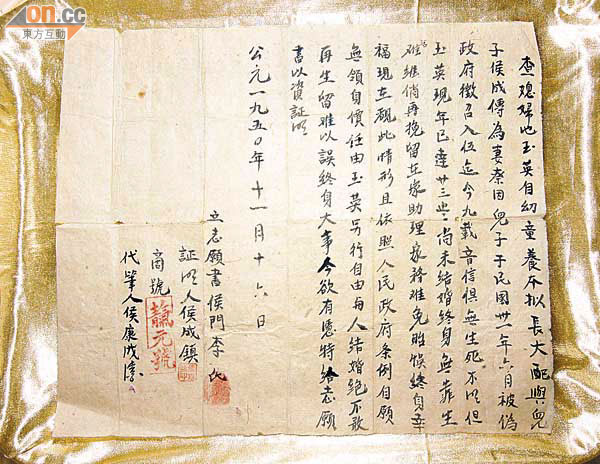 on.cc
東方互動
查媳婦池玉英自幼童養本拟長大配與兒
子侯成傳為妻奈因兒子于民國卅一年六月被偽
政府徵召入伍迄今九載音信俱無生死不明但
玉英現年已達廿三歲尚未結婚終身無靠生
維艱倘再挽留在家助理家務难免躭悞終身幸
福現在覩此情形且依照人民政府条例自願
無領自償任由玉英另行自由与人結婚絕不敢
再生留难以誤終身大事今欲有憑特給志願
書以資証明
公元一九五〇年十一月十六日
立志願書侯門李氏
証明人侯成鎮
商號 元號
代筆人侯康成